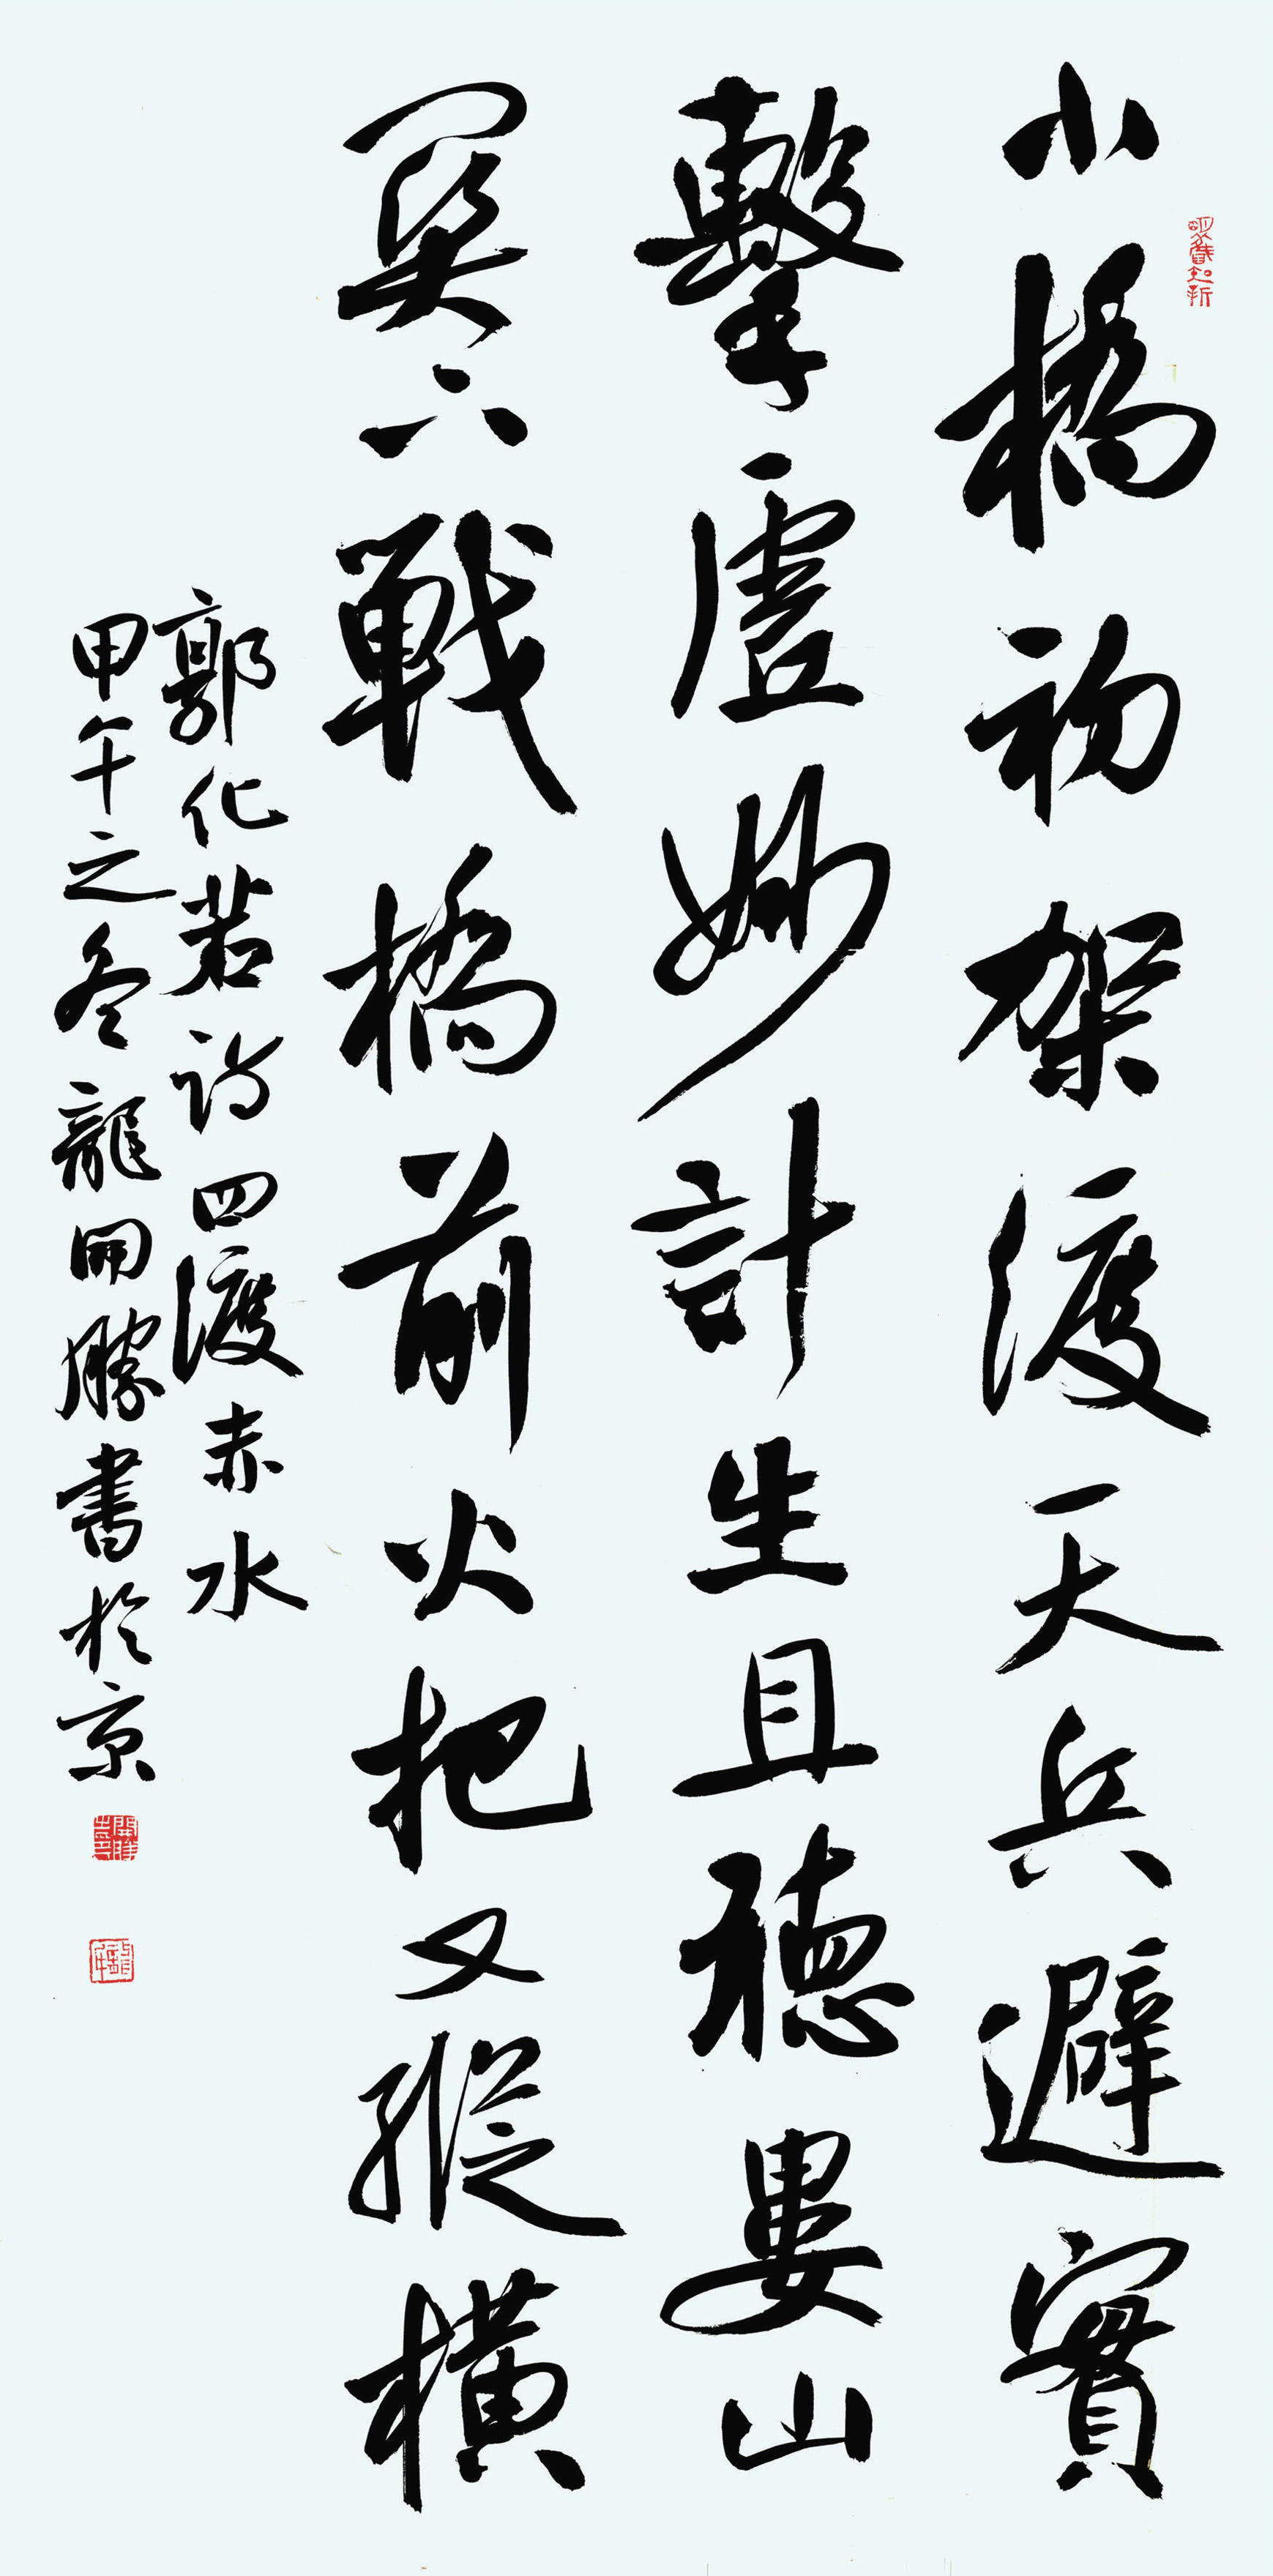 小橋初架渡天兵避實
擊虛妙計生且聽婁山
関六戰橋前火把又縱橫
郭化若詩四渡赤水
甲午之冬龍開勝書於京